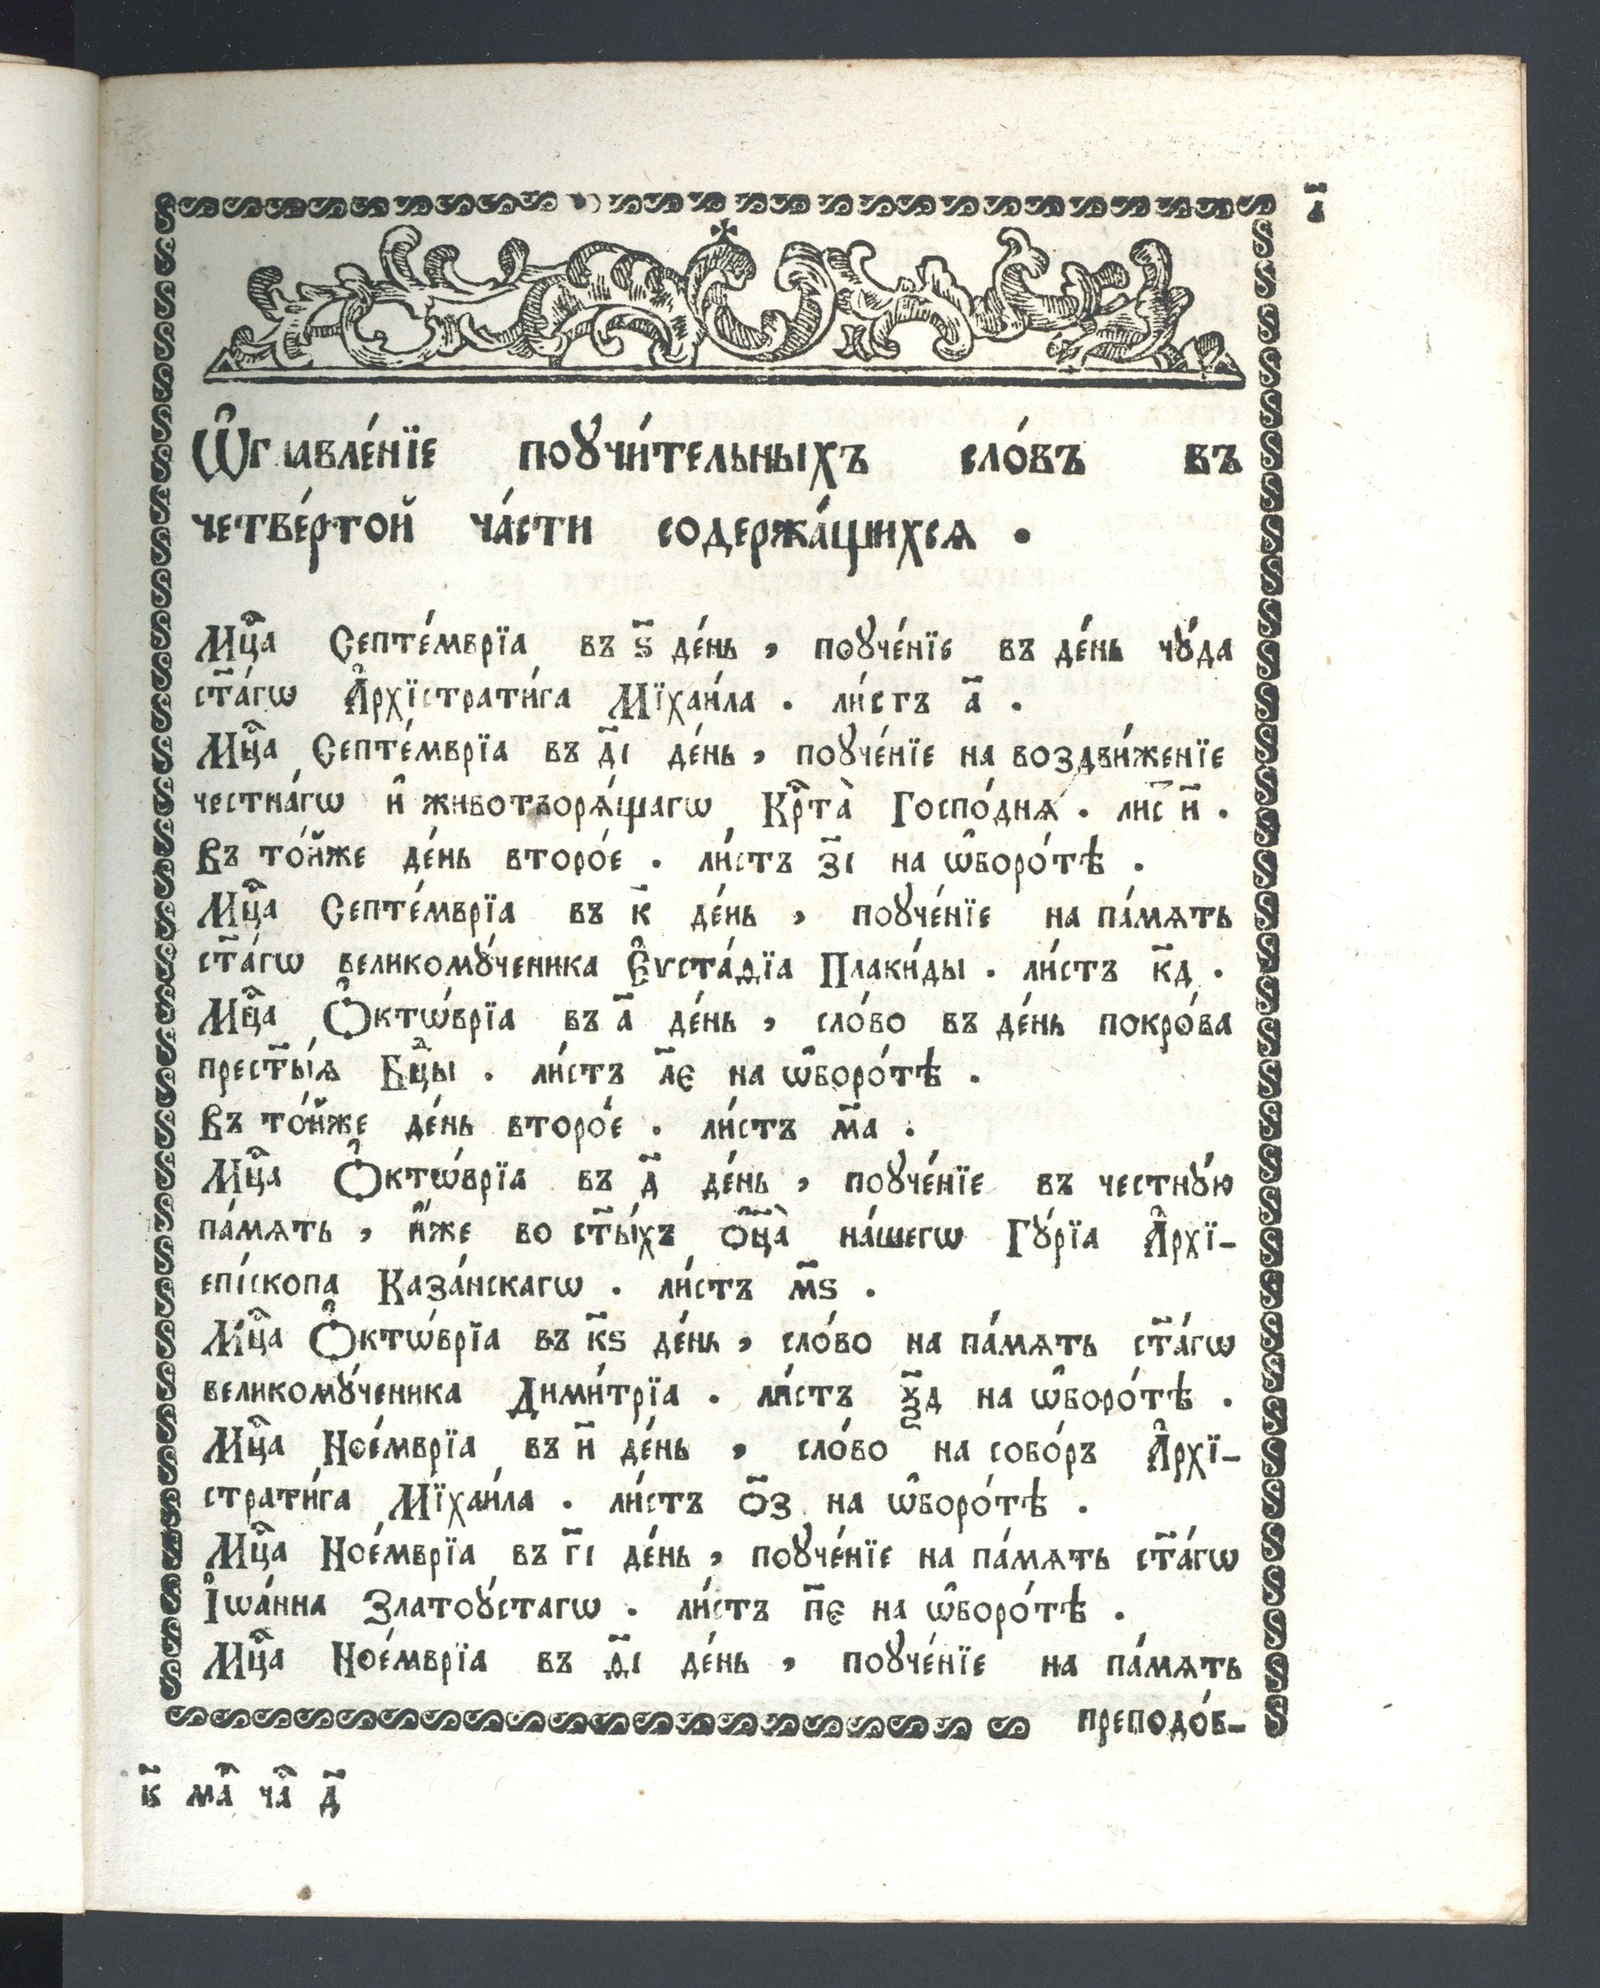 Ѡ҆главле́нїе поꙋчи́тельныхъ сло́въ въ
четве́ртой ча́сти содержа́щихсѧ .
Мцⷭ҇а Септе́мврїа въ ѕ҃ де́нь , поꙋче́нїе въ де́нь чꙋ́да
ст҃а́гѡ А҆рхїстрати́га Мїхаи́ла . ли́стъ а҃ .
Мцⷭ҇а Септе́мврїа въ д҃і де́нь , поꙋче́нїе на воздви́женїе
честна́гѡ и҆ животворѧ́щагѡ Крⷭ҇та̀ Госпо́днѧ . лис̾ и҃ .
Въ то́йже де́нь второ́е . ли́стъ з҃і на ѡ҆боро́тѣ .
Мцⷭ҇а Септе́мврїа въ к҃ де́нь , поꙋче́нїе на па́мѧть
ст҃а́гѡ великомꙋ́ченика Є҆ѵста́ѳїа Плаки́ды . ли́стъ к҃д .
Мцⷭ҇а Ѻ҆ктѡ́врїа въ а҃ де́нь , сло́во въ де́нь покро́ва
прест҃ы́ѧ Бцⷣы . ли́стъ л҃є на ѡ҆боро́тѣ .
Въ то́йже де́нь второ́е . ли́стъ м҃а .
Мцⷭ҇а Ѻ҆ктѡ́врїа въ д҃ де́нь , поꙋче́нїе въ честнꙋ́ю
па́мѧть , и҆́же во ст҃ы́хъ ѻ҆ц҃а̀ на́шегѡ Гꙋ́рїа А҆рхї-
епі́скопа Каза́нскагѡ . ли́стъ м҃ѕ .
Мцⷭ҇а Ѻ҆ктѡ́врїа въ к҃ѕ де́нь , сло́во на па́мѧть ст҃а́гѡ
великомꙋ́ченика Дими́трїа . ли́стъ ѯ҃д на ѡ҆боро́тѣ .
Мцⷭ҇а Ное́мврїа въ и҃ де́нь , сло́во на собо́ръ А҆рхї-
страти́га Мїхаи́ла . ли́стъ ѻ҃з на ѡ҆боро́тѣ .
Мцⷭ҇а Ное́мврїа въ г҃і де́нь , поꙋче́нїе на па́мѧть ст҃а́гѡ
І҆ѡа́нна Златоꙋ́стагѡ . ли́стъ п҃є на ѡ҆боро́тѣ .
Мцⷭ҇а Ное́мврїа въ ѳ҃і де́нь , поꙋче́нїе на па́мѧть
преподо́б-
к҃ маⷭ҇ чаⷭ҇ д҃